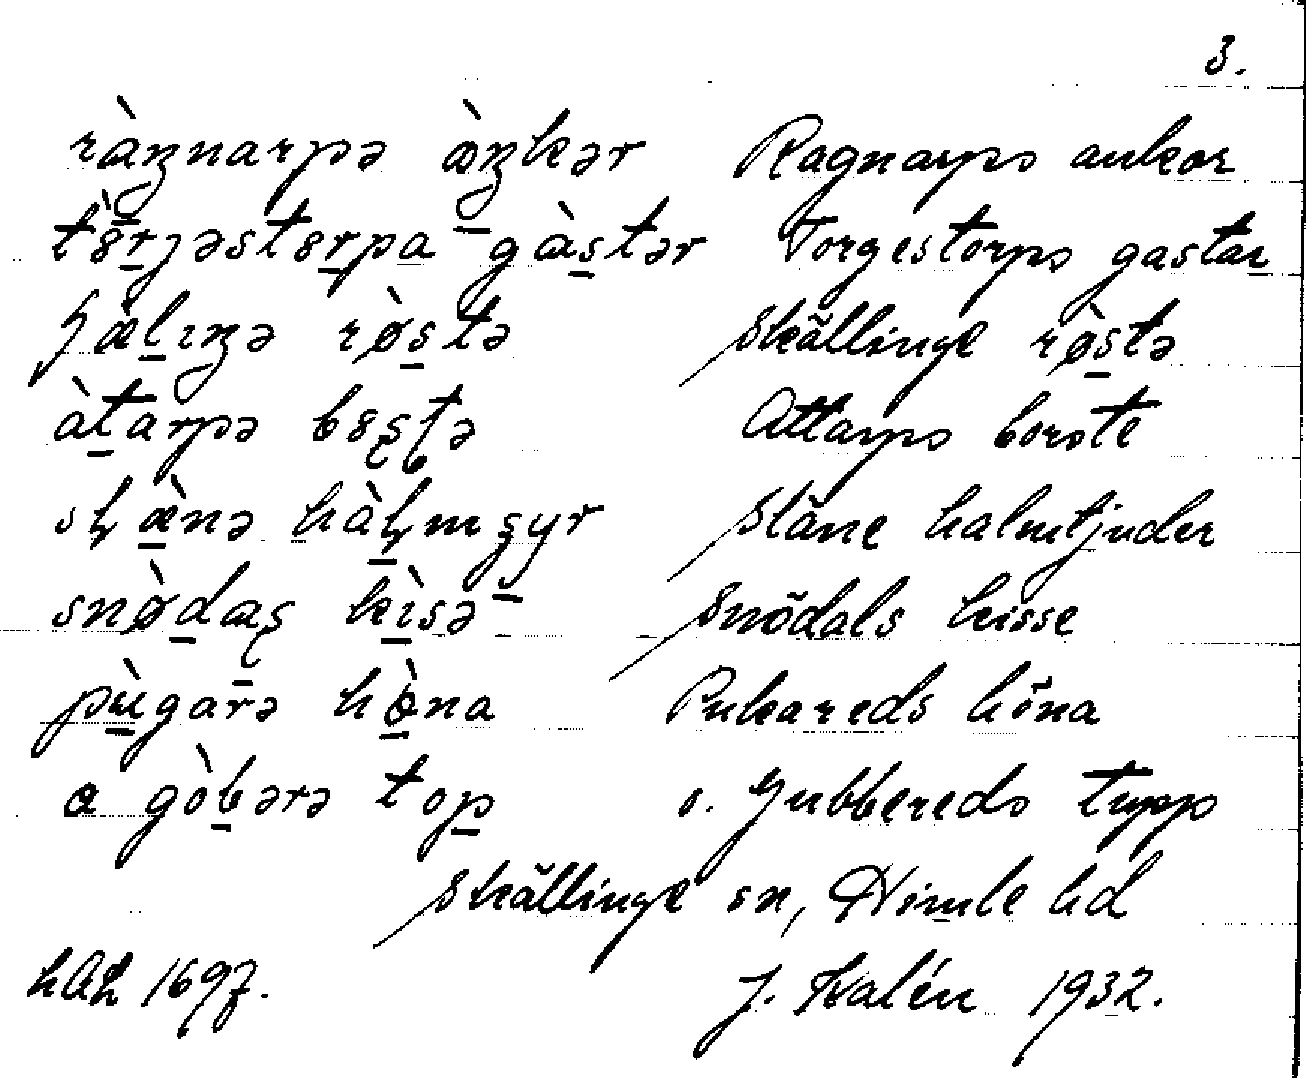 3.
ràŋnarpə àŋkər Ragnarps ankor
tȣ̀rjəstȣrpa gàstər Torgestorps gastar
ʃæ̀lıŋə rø̀stə Skällinge rø̀stə
àtarpə bȣʂʈə Attarps borste
sɧæ̀nə hàɧmʂyr Släne halmtjuder
snø̀daʂ kìsə Snödals kisse
pùgarə hø̀na Pukareds höna
a gòbərə top o. Gubbereds tupp
Skällinge sn, Himle hd
1697. J. Kalén 1932.